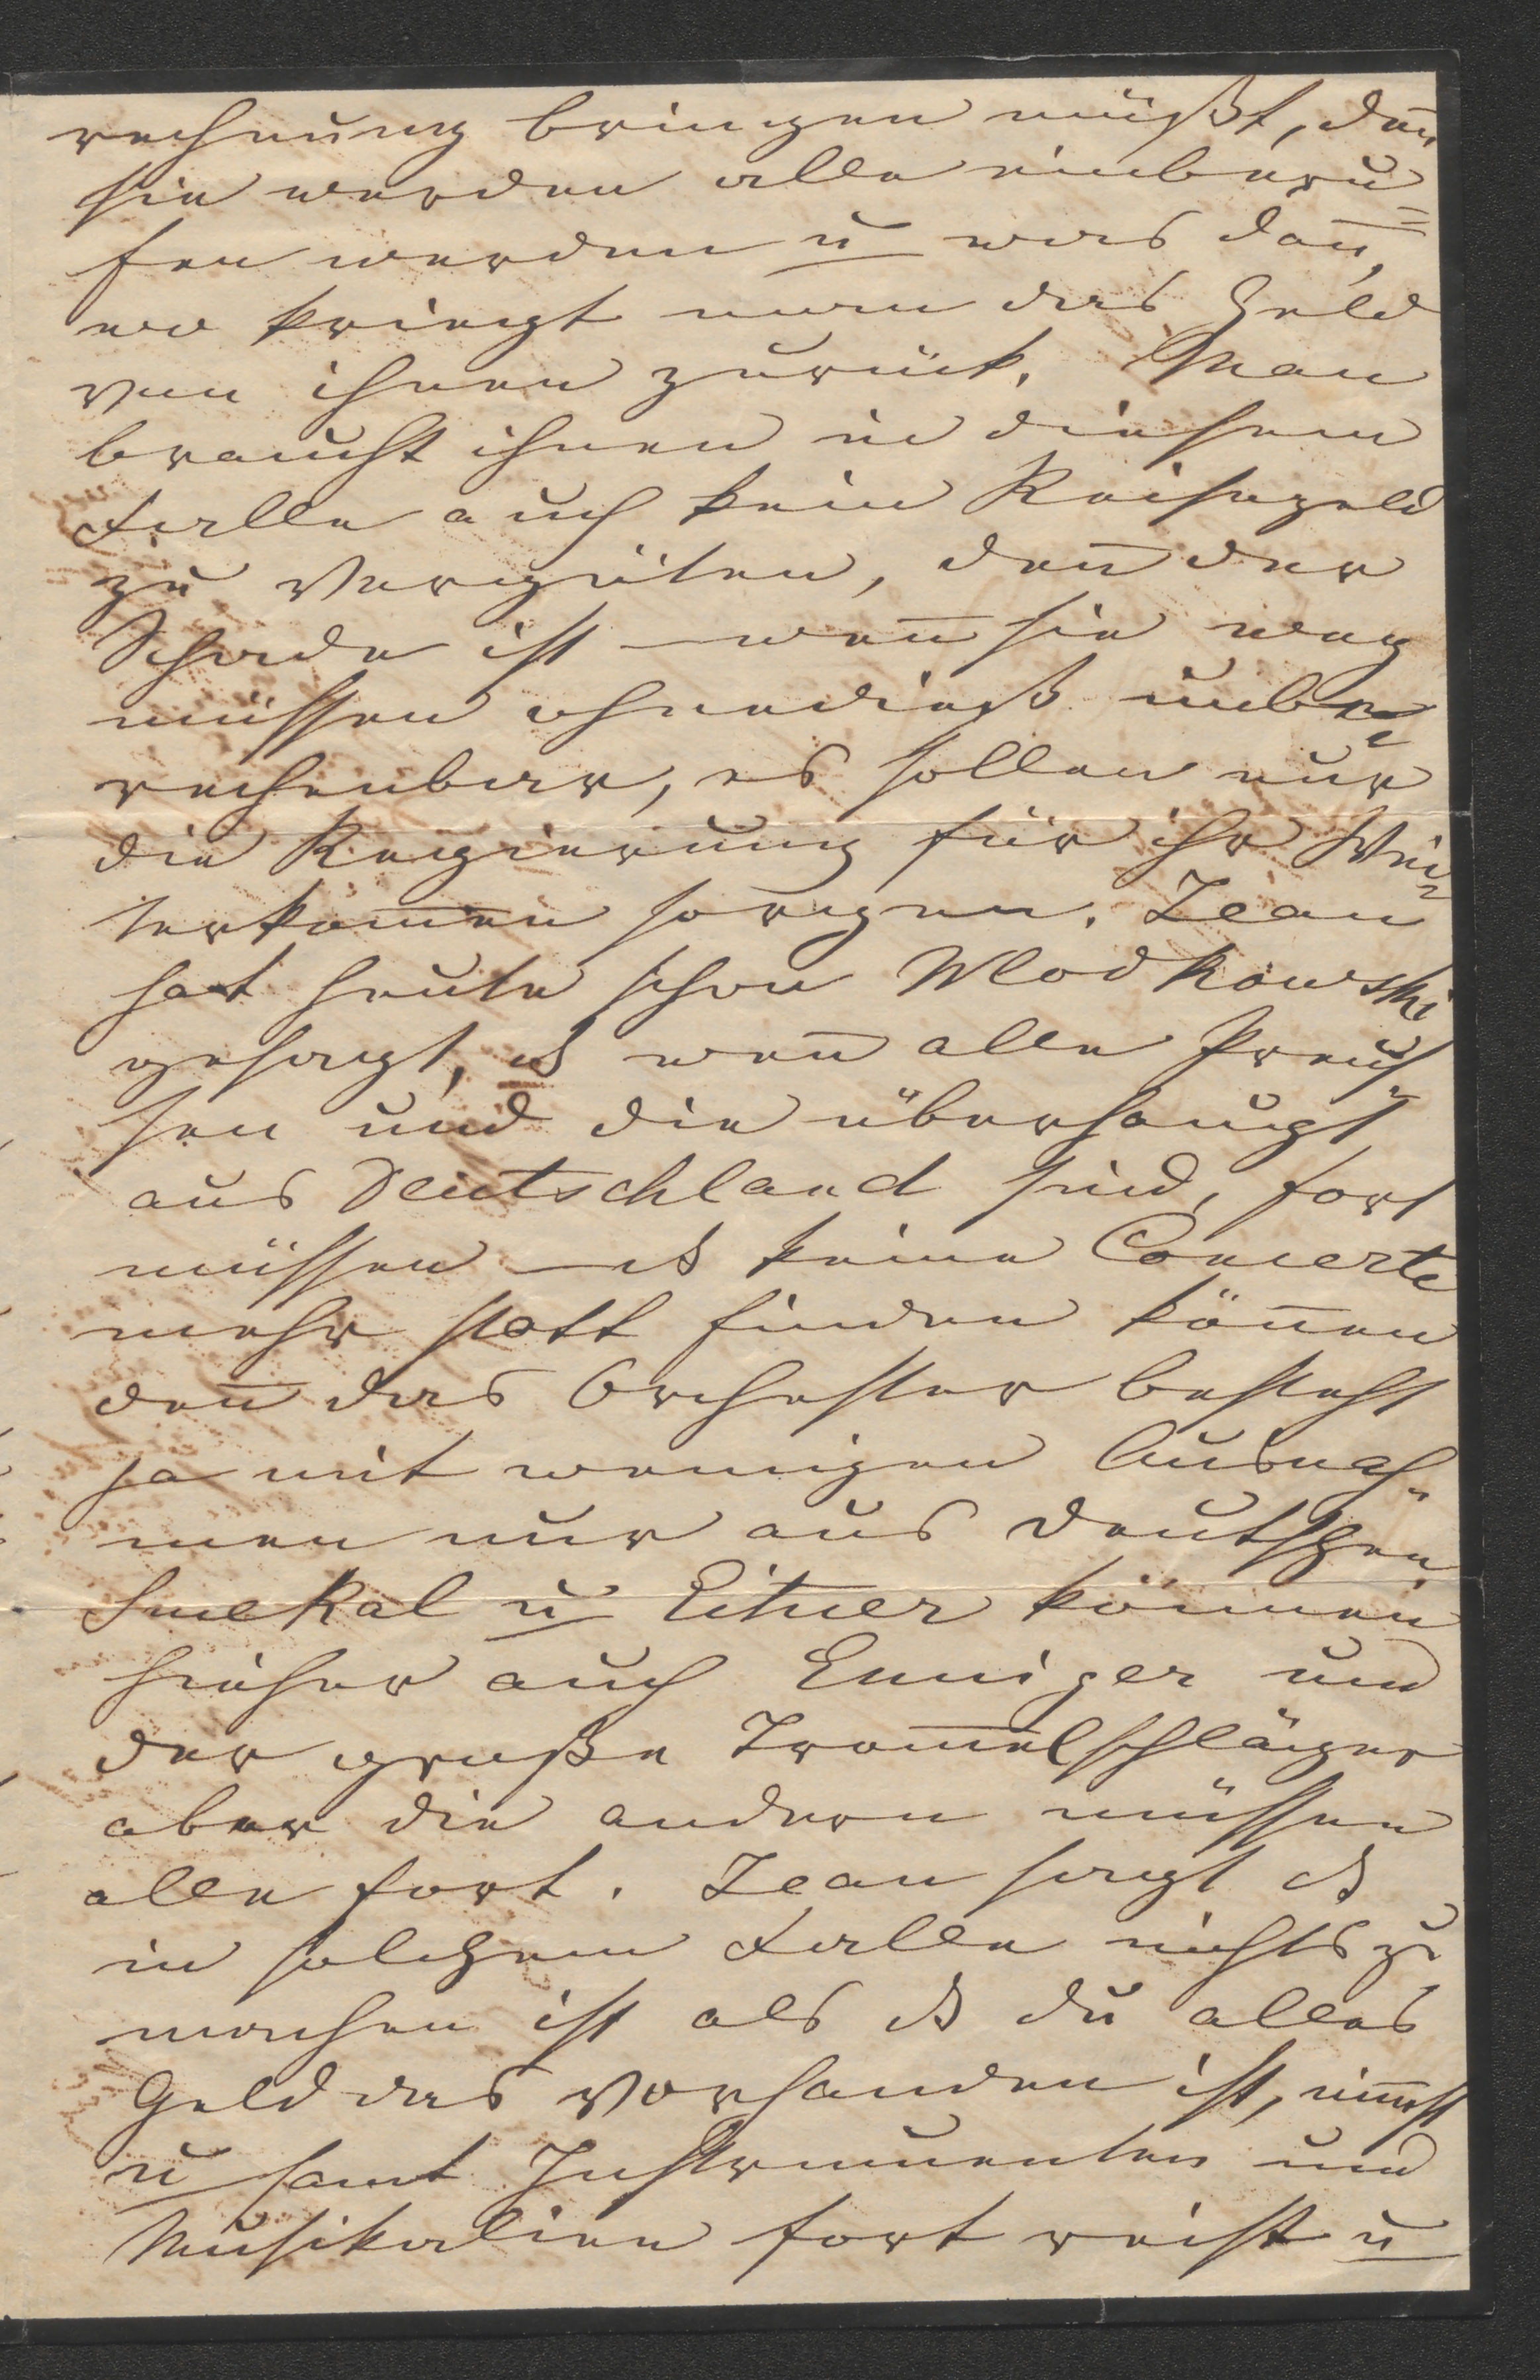 rechnung bringen müßt, den̄
sie werden alle einberu=
fen werden u was dan̄,
wo kriegt man das Geld
von ihnen zurück. Man
braucht ihnen in diesem
Falle auch kein Reisegeld
zu vergüten, den̄ der
Schade ist wen̄ sie weg
müssen ohnedieß unbe=
rechenbar, es sollen nur
die Regierung für ihr Wei=
terkom̄en sorgen. Jean
hat heute schon Wlodkowski
gesagt, ds wen̄ alle Preus
sen und die überhaupt
aus Deutschland sind, fort
müssen ds keine Concerte
mehr statt finden kön̄en
den̄ das Orchester besteht
ja mit wenigen Ausnah=
men nur aus Deutschen.
Smekal u Eitner können
hieher auch Enniger und
der große Trom̄elschläger
aber die andern müssen
alle fort. Jean sagt ds
in solchem Falle nichts zu
machen ist als ds du alles
Geld das vorhanden ist, nim̄st
u samt Instrumenten und
Musikalien fort reist u